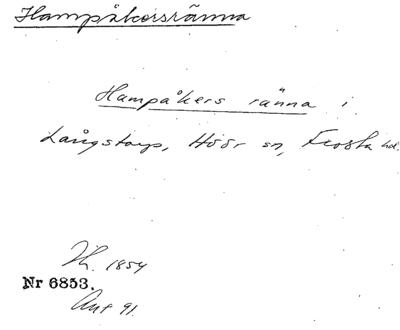 Hampåkersränna
Hampåkers ränna i
Långstorp, Höör sn, Frosta hd.
1854
Nr 6853.
Ant 91.